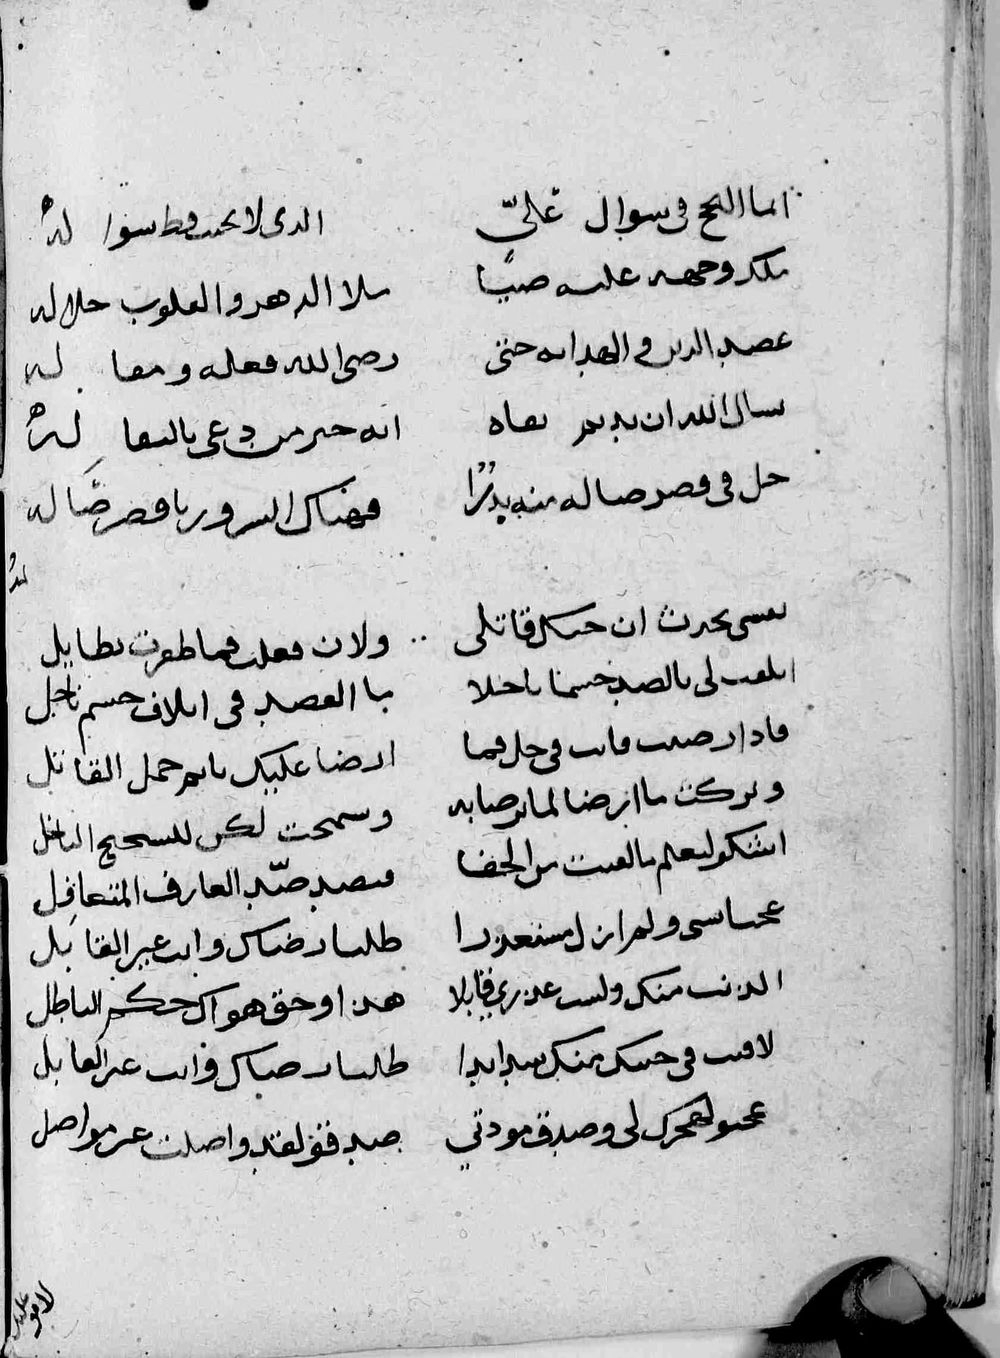 انما النجح في سوال عليّ الذي لا يخيب قط سؤاله
ملك وجهه عليه ضيا ملا الدهر والقلوب جلاله
عضد الدين والهدايه حتى رضي الله فعله ومقاله
نسال الله ان يديم بقاه انه خير من دعي بالبقا له
حل في قصر صاله منه بدرا فهناك السرور يا قصر صاله
نفسي تحدث ان حبك قاتلي ولان فعلت فما ظفرت بطايل
اتلفت لي بالصد جسما ناحلا ما القصد في اتلاف جسم ناحل
فاذا رضيت فانت في حل فما ارضا عليك باثم حمل القاتل
وتركت ما ارضا لما ترضا به وسمحت لكن للشحيح الباخل
اشكو ليعلم ما لقيت من الجفا فيصد صدّ العارف المتغافل
طلبا رضاك وانت غير القابل
الذنب منك ولست عذري قابلا هذا وحق هواك حكم الباطل
لاقيت في حبك منك
عجبا لهجرك لي وصدق مودتي صدقني لقد واصلت غير مواصل